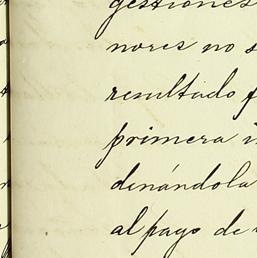 gestiones
nores no s
resultado f
primera i
denándola
al pago de